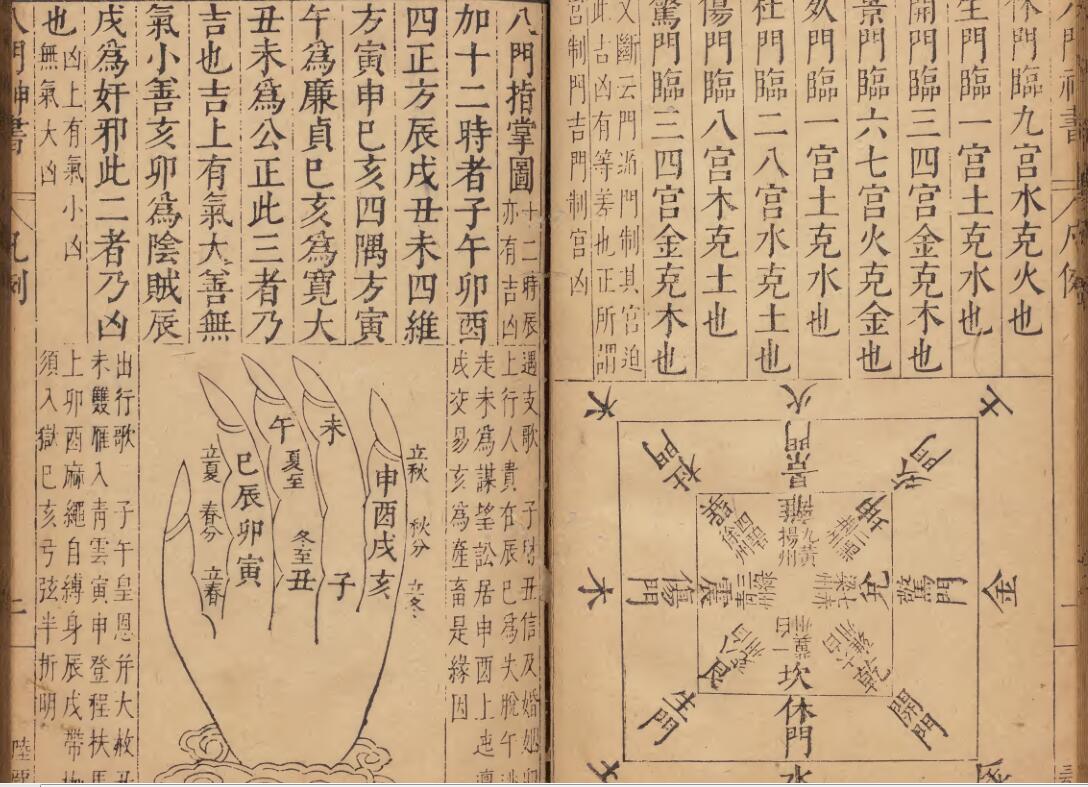 休門臨九宮水克火也
生門臨一宮土克水也
開門臨三四宮金克木也
景門臨六七宮火克金也
門臨一宮土克水也
杜門臨二八宮水克土也
傷門臨八宮木克土也
驚門臨三四宮金克木也
又斷云門門制其宮迫
此古凶有等差也正所謂
宮制門吉門制宮凶
火
景門
離
九黃
揚州
土
門
坤
金
驚門
兌
開門
乾
水
休門
坎
生門
木
傷門
震
木
杜門
四碧
徐州
八門指掌圖
十二時辰
亦有吉凶
加十二時者子午卯酉
四正方辰戌丑未四維
方寅申巳亥四隅方寅
午為廉貞巳亥為寬大
丑未為公正此三者乃
吉也吉上有氣大善無
氣小善亥卯為陰賊辰
戌為奸邪此二者乃凶
也
凶上有氣小凶
無氣大凶
遇支歌 子時丑信及婚姻卯
上行人貴在辰巳為失脫午逃
走未為謀望訟居申酉上迍邅
戌交易亥為産畜是緣因
立秋 秋分 立冬
申酉戌亥
未 子
午 夏至 冬至 丑
巳辰卯寅
立夏 春分 立春
出行歌 子午皇恩并大赦丑
未雙雁入青雲寅申登程扶馬
上卯酉麻繩自縛身辰戌帶枷
須入獄巳亥弓弦半折明
八門神書 凡例 上